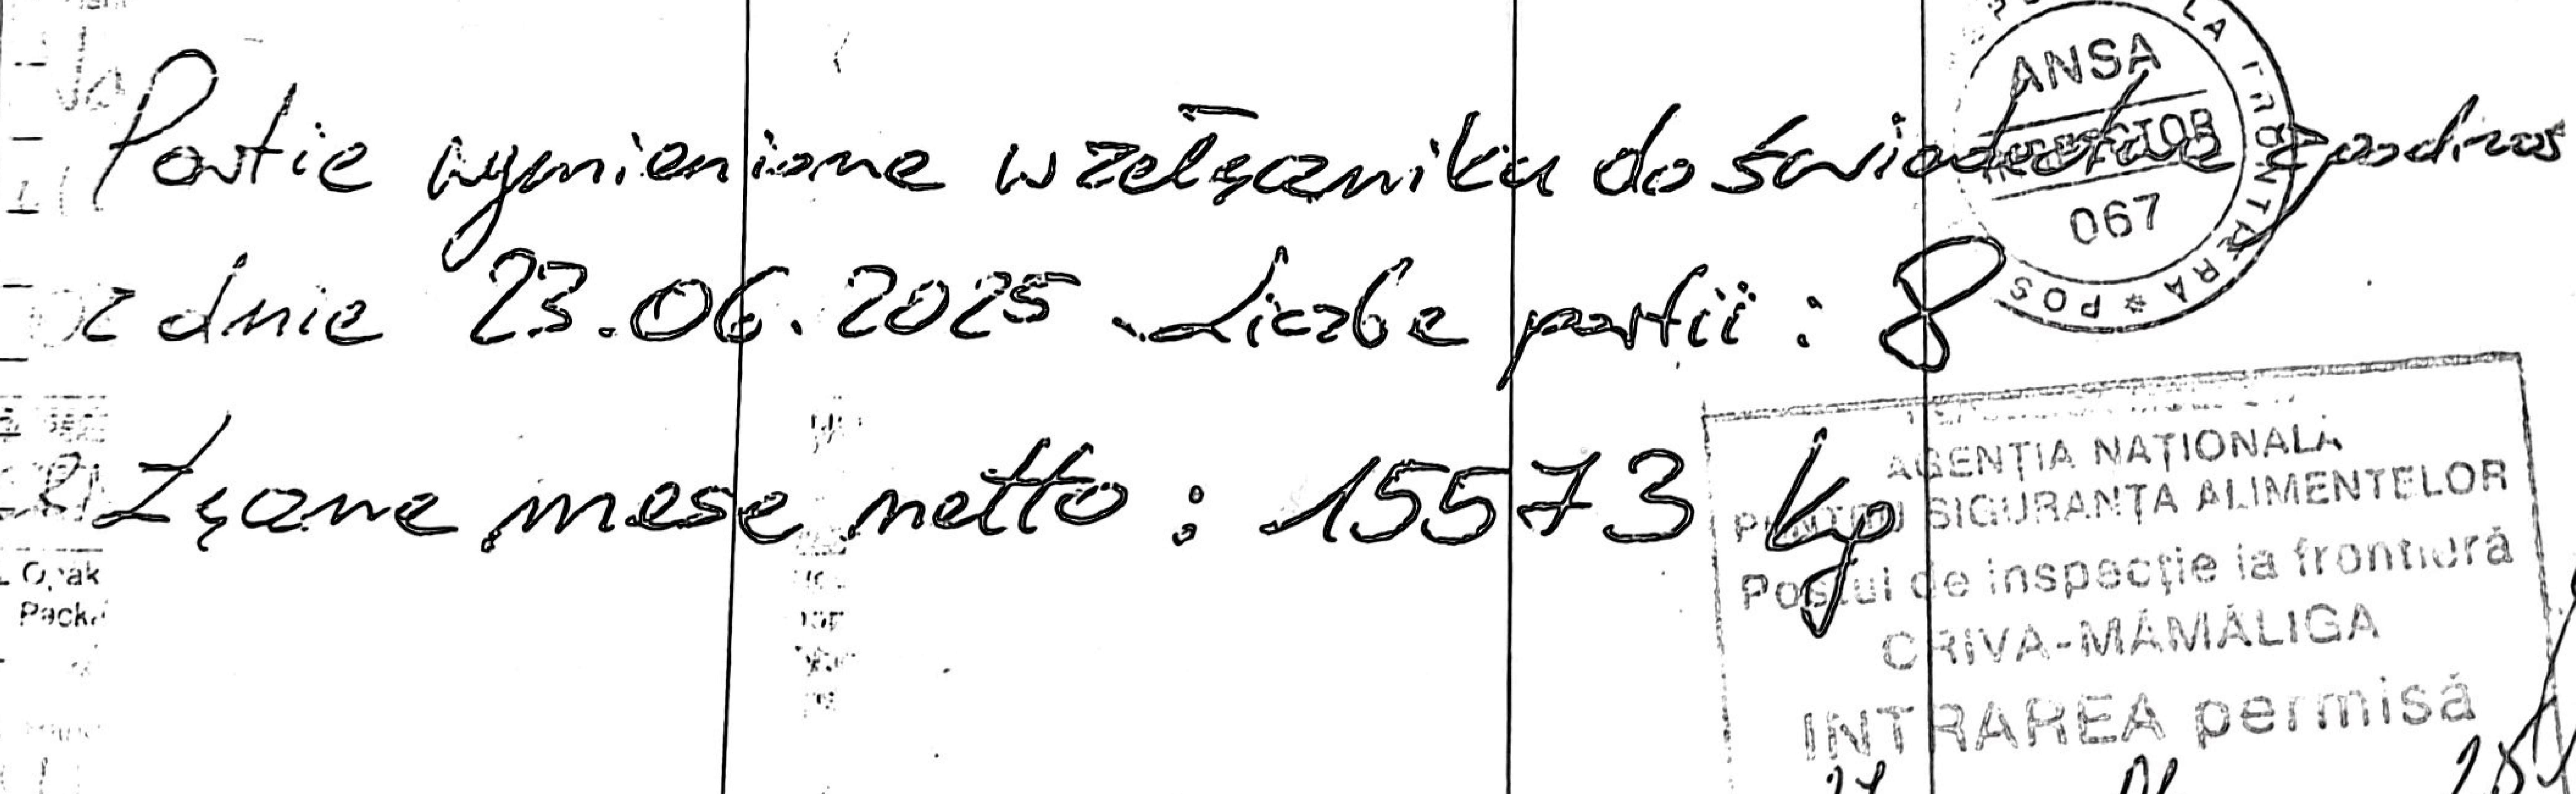 Partie wymienione w załączniku do świadectwa
z dnia 23.06.2025 Liczba partii : 8
Łączna masa netto : 15573 kg
ANSA
INSPECTOR
067
POS * POSTUL LA FRONTIERA
AGENȚIA NAȚIONALĂ
PENTRU SIGURANȚA ALIMENTELOR
Postul de inspecție la frontieră
CRIVA-MĂMĂLIGA
INTRAREA permisă
Opak
Pack